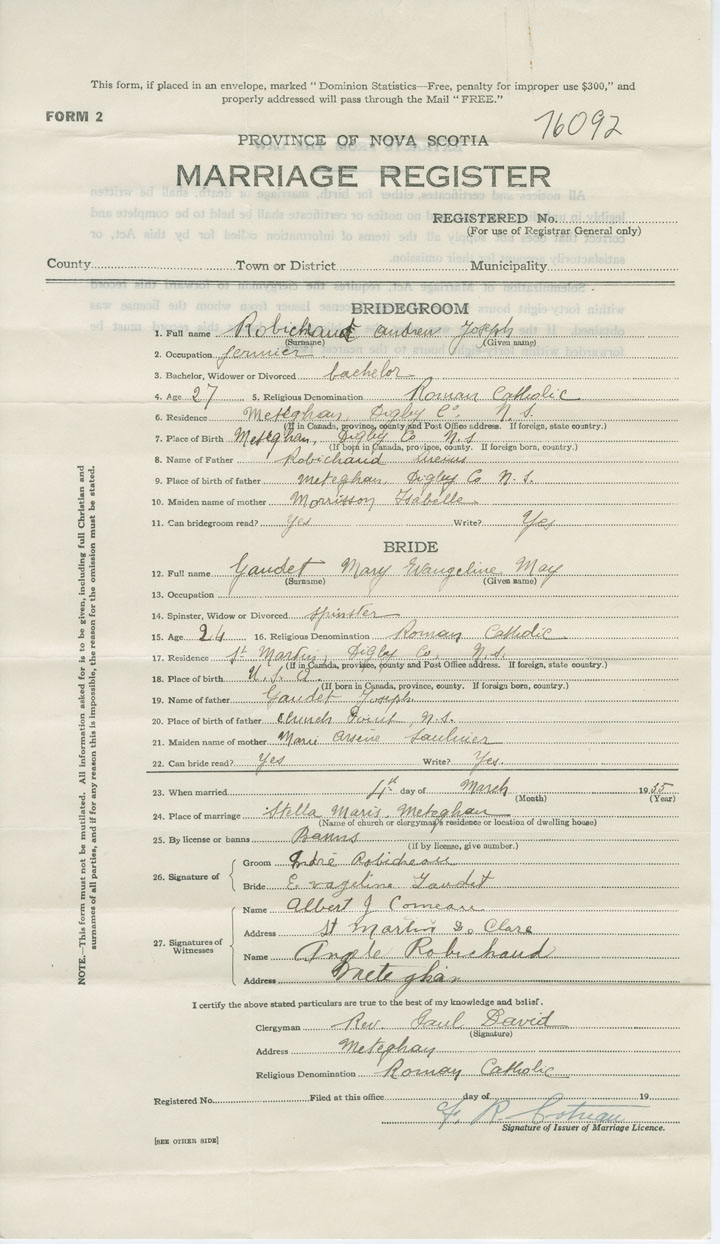 This form, if placed in an envelope, marked "Dominion Statistics—Free, penalty for improper use $300," and
properly addressed will pass through the Mail "FREE."
FORM 2
76092
PROVINCE OF NOVA SCOTIA
MARRIAGE REGISTER
REGISTERED No.
(For use of Registrar General only)
County Town or District Municipality
BRIDEGROOM
1. Full name Robichaud Andrew Joseph
(Surname) (Given name)
2. Occupation
3. Bachelor, Widower or Divorced bachelor
4. Age 27 5. Religious Denomination Roman Catholic
6. Residence Meteghan, Digby Co. N. S.
(If in Canada, province, county and Post Office address. If foreign, state country.)
7. Place of Birth Meteghan, Digby Co N.S
(If born in Canada, province, county. If foreign born, country.)
8. Name of Father Robichaud
9. Place of birth of father Meteghan, Digby Co N. S.
10. Maiden name of mother Morrisson Isabelle
11. Can bridegroom read? Yes Write? Yes
BRIDE
12. Full name Gaudet Mary Evangeline May
(Surname) (Given name)
13. Occupation
14. Spinster, Widow or Divorced spinster
15. Age 26 16. Religious Denomination Roman Catholic
17. Residence St Martin, Digby Co, N.S.
(If in Canada, province, county and Post Office address. If foreign, state country.)
18. Place of birth U.S.A.
(If born in Canada, province, county. If foreign born, country.)
19. Name of father Gaudet Joseph
20. Place of birth of father Church Point N.S.
21. Maiden name of mother Marie Arsène Saulnier
22. Can bride read? Yes Write? Yes.
23. When married 4th day of March 1935
(Month) (Year)
24. Place of marriage Stella Maris, Meteghan
(Name of church or clergyman's residence or location of dwelling house)
25. By license or banns Banns
(If by license, give number.)
26. Signature of Groom André Robicheau
Bride Evageline Gaudet
27. Signatures of Witnesses Name Albert J Comeau
Address St Martin Co Clare
Name Angele Robichaud
Address Meteghan
I certify the above stated particulars are true to the best of my knowledge and belief.
Clergyman Rev. Paul David
(Signature)
Address Meteghan
Religious Denomination Roman Catholic
Registered No. Filed at this office day of 19
Signature of Issuer of Marriage Licence.
[SEE OTHER SIDE]
NOTE.—This form must not be mutilated. All information asked for is to be given, including full Christian and
surnames of all parties, and if for any reason this is impossible, the reason for the omission must be stated.